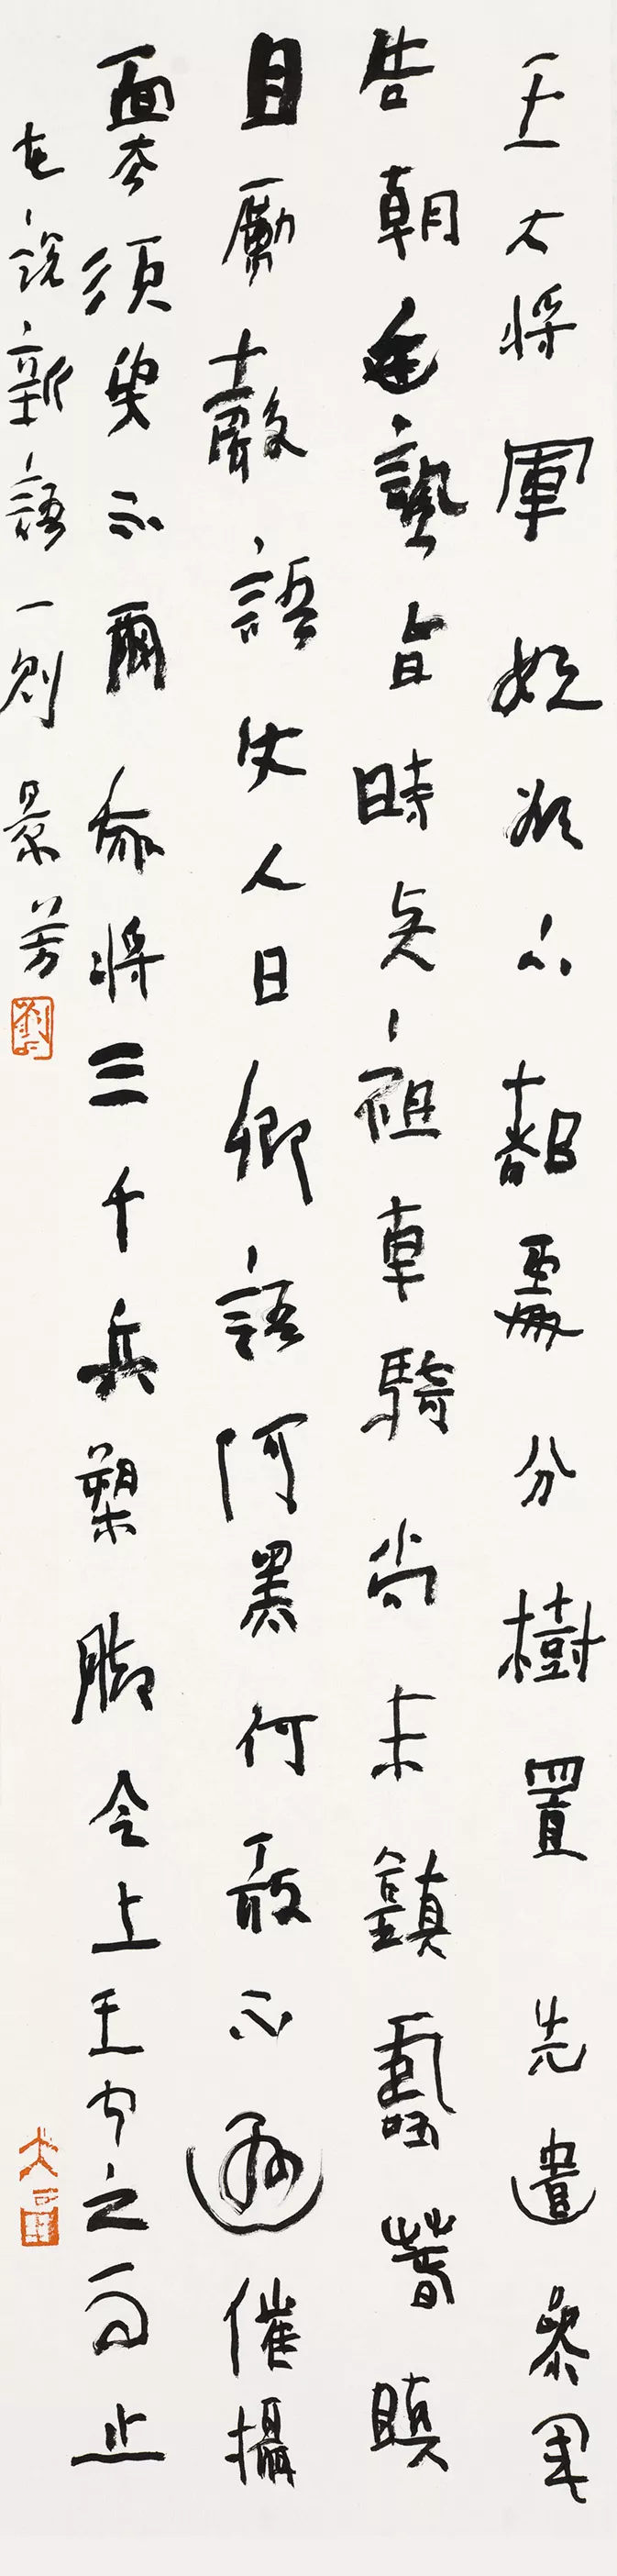 王大将軍始欲下都處分樹置先遣參軍
告朝廷諷旨時賢祖車騎尚未鎮壽春瞋
目厲聲語使人曰卿語阿黑何敢不遜催攝
面去須臾不爾我将三千兵槊脚令上王聞之而止
世説新語一則景芳
劉